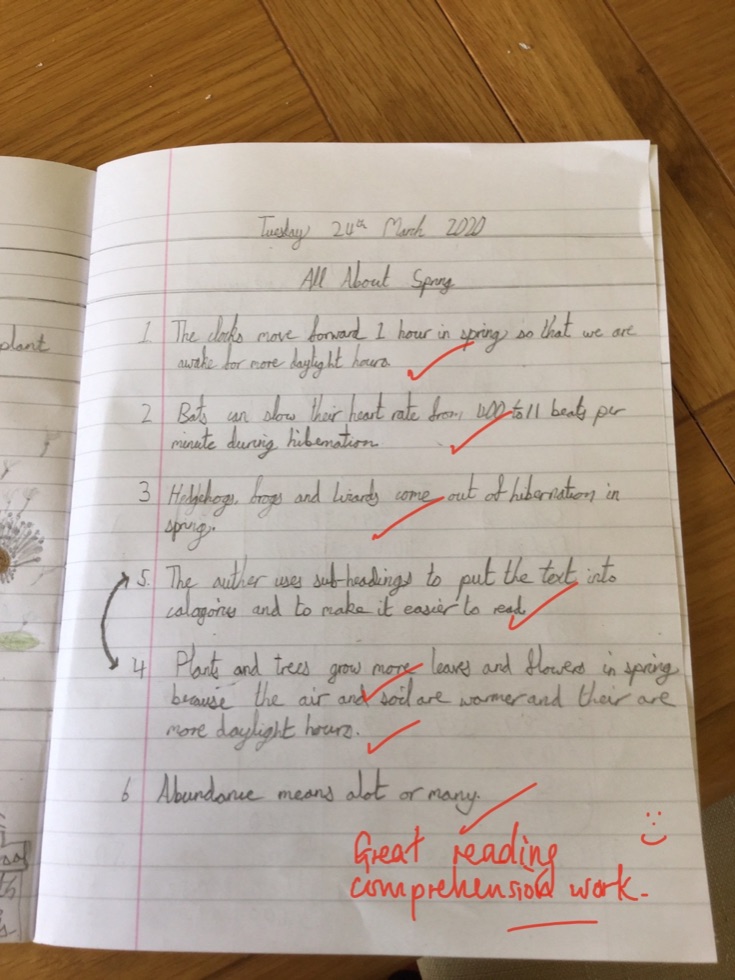 plant
Tuesday 24th March 2020
All About Spring
1. The clocks move forward 1 hour in spring so that we are
awake for more daylight hours.
2 Bats can slow their heart rate from 400 to 11 beats per
minute during hibernation.
3 Hedgehogs, frogs and lizards come out of hibernation in
spring.
5. The auther uses sub-headings to put the text into
catagories and to make it easier to read.
4 Plants and trees grow more leaves and flowers in spring
because the air and soil are warmer and their are
more daylight hours.
6 Abundance means alot or many.
Great reading
comprehension work.